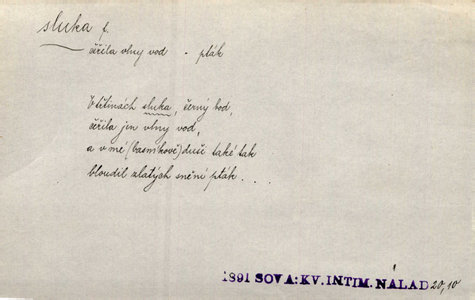 sluka f.
čeřila vlny vod - pták
V třtinách sluka, černý bod,
čeřila jen vlny vod,
a v mé (básníkově) duši také tak
bloudil zlatých snění pták . . .
1891 SOVA: KV. INTIM. NÁLAD 20, 10